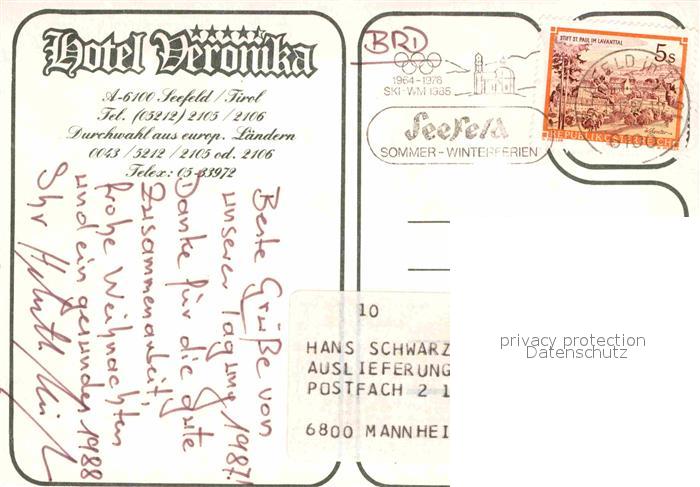 Hotel Veronika
A-6100 Seefeld / Tirol
Tel. (05212) 2105 / 2106
Durchwahl aus europ. Ländern
0043 / 5212 / 2105 od. 2106
Telex: 05-33972
Beste Grüße von
unserer Tagung 1987!
Danke für die gute
Zusammenarbeit,
frohe Weihnachten
und ein gesundes 1988
Ihr
BRD
1964-1976
SKI-WM 1985
Seefeld
SOMMER-WINTERFERIEN
STIFT ST. PAUL IM LAVANTTAL
5s
REPUBLIK ÖSTERREICH
10
HANS SCHWARZ
AUSLIEFERUNG
POSTFACH 2 1
6800 MANNHEI
privacy protection
Datenschutz